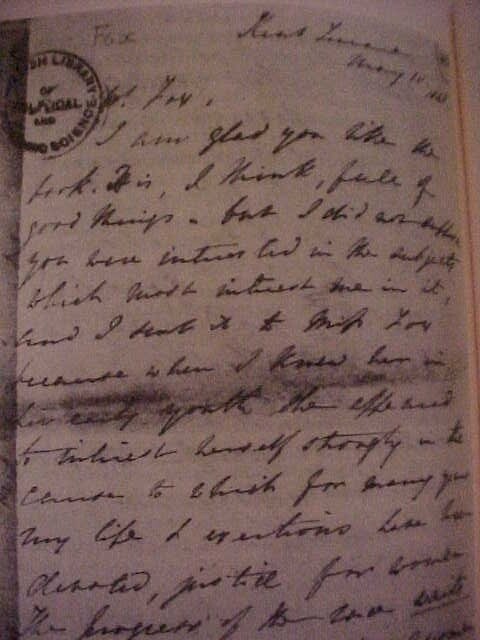 Fox
Kent Terrace
May 10
BRITISH LIBRARY
OF
POLITICAL
AND
ECONOMIC SCIENCE
Mr. Fox,
I am glad you like the
book. It is, I think, full of
good things - but I did not suppose
you were interested in the subjects
which most interest me in it,
and I sent it to Miss Fox
because when I knew her in
her early youth she appeared
to interest herself strongly in the
cause to which for many years
my life & exertions have been
devoted, justice for women
The progress of the race waits